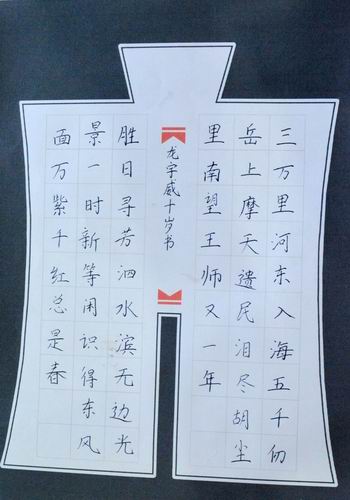 三万里河东入海五千仞
岳上摩天遗民泪尽胡尘
里南望王师又一年
龙宇威十岁书
胜日寻芳泗水滨无边光
景一时新等闲识得东风
面万紫千红总是春